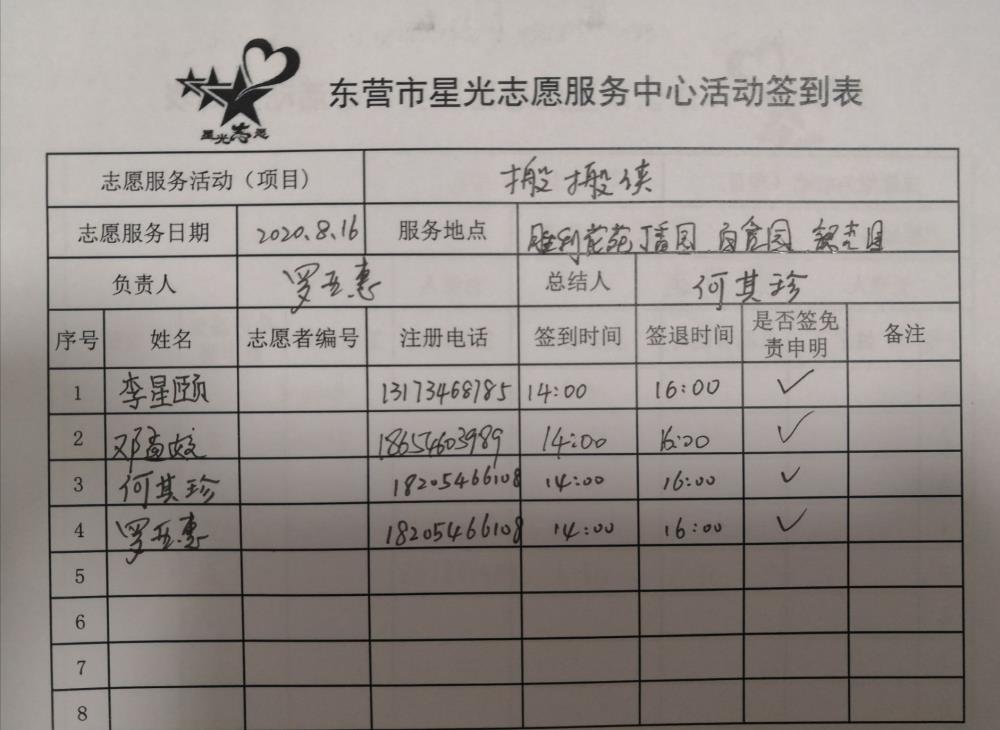 星光志愿
东营市星光志愿服务中心活动签到表
志愿服务活动（项目） 搬搬侠
志愿服务日期 2020.8.16 服务地点 胜利花苑丁香园
负责人 罗亚惠 总结人 何其珍
序号 姓名 志愿者编号 注册电话 签到时间 签退时间 是否签免责申明 备注
1 李星颐 13173468785 14:00 16:00 ✓
2 邓 18654603989 14:00 16:00 ✓
3 何其珍 18205466108 14:00 16:00 ✓
4 罗亚惠 18205466108 14:00 16:00 ✓
5
6
7
8